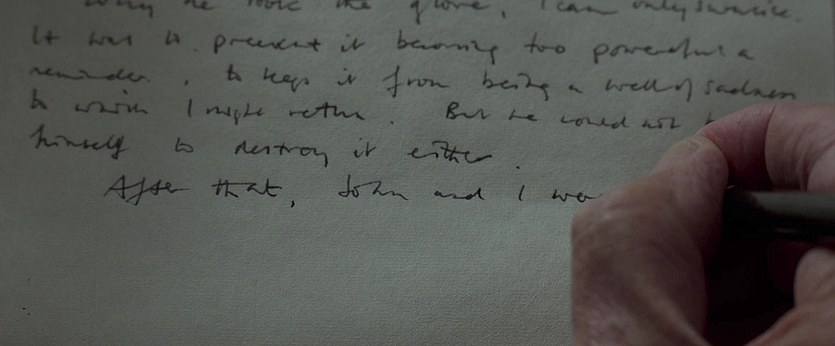 why he took the glove, I can only surmise.
It was to prevent it becoming too powerful a
reminder, to keep it from being a well of sadness
to which I might return. But he could not
himself to destroy it either.
After that, John and I we